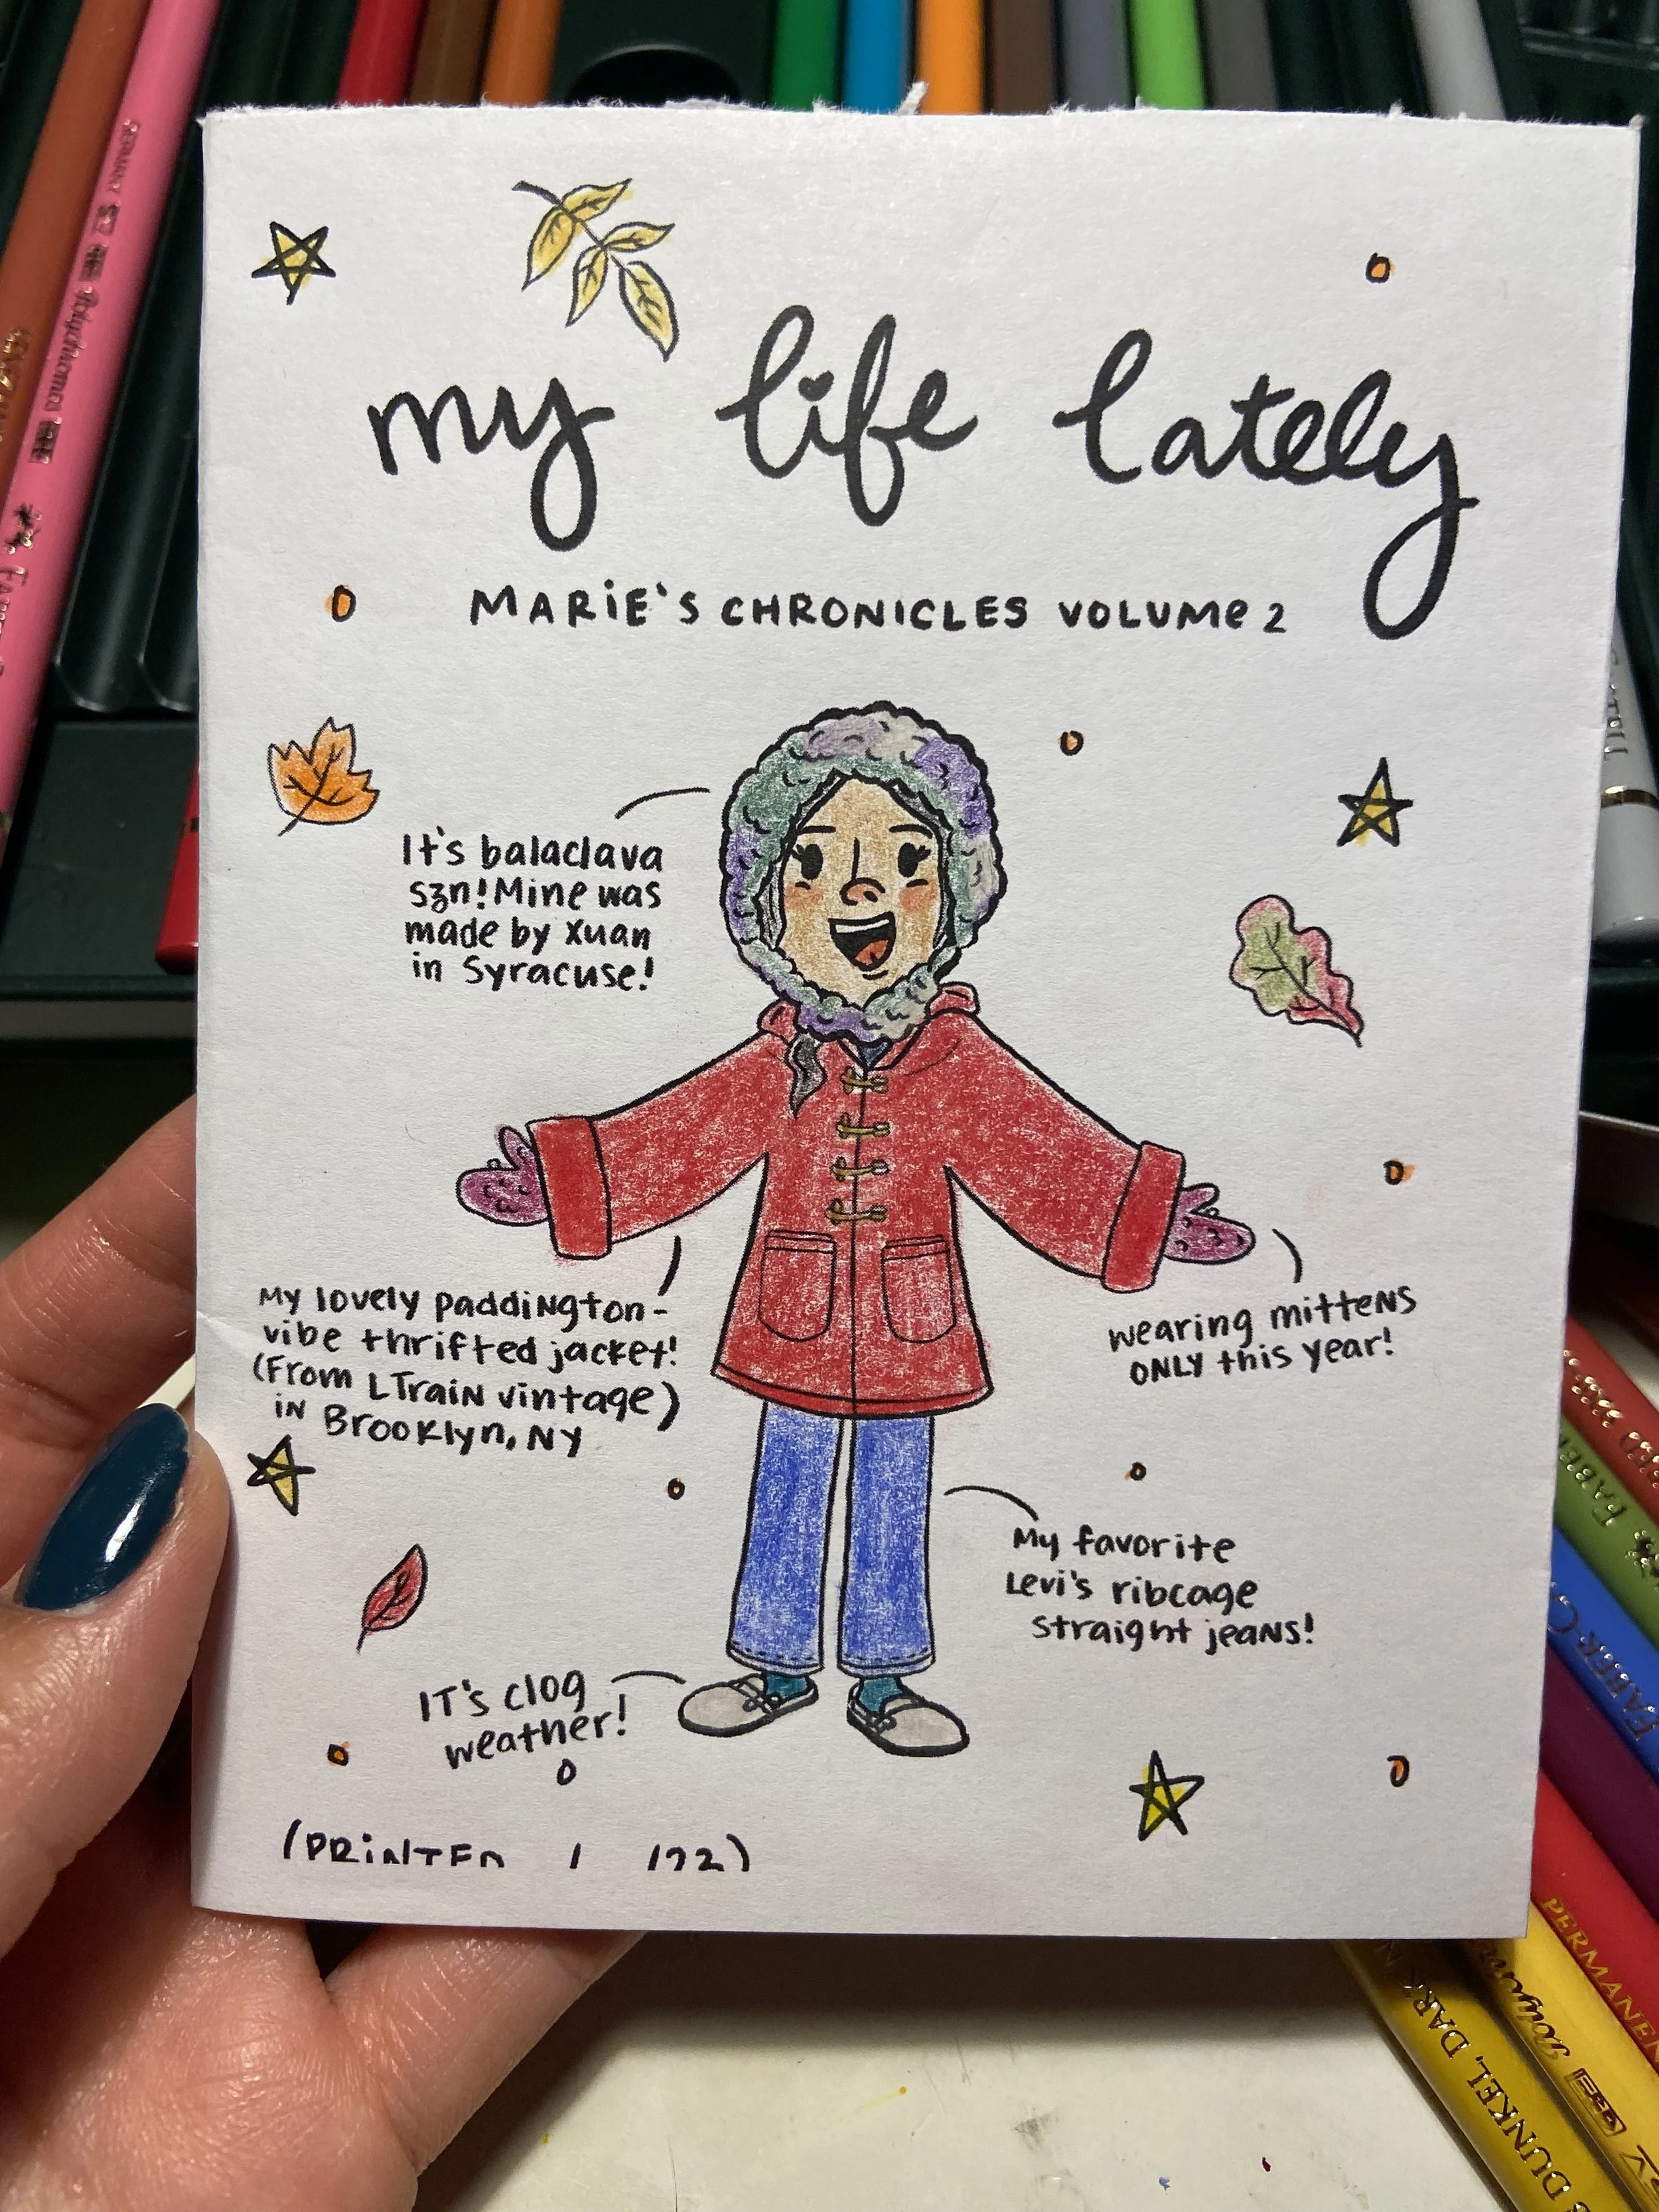 my life lately
MARiE'S CHRONICLES VOLUMe 2
It's balaclava
szn! Mine was
made by Xuan
in Syracuse!
My lovely paddiNgton-
vibe thrifted jacket!
(From LTraiN vintage)
iN Brooklyn, NY
wearing mitteNS
ONLY this year!
My favorite
Levi's ribcage
straight jeaNS!
IT's clog
weather!
(PRiNTED
Polychromos
PERMANEN
DUNKEL, DARK